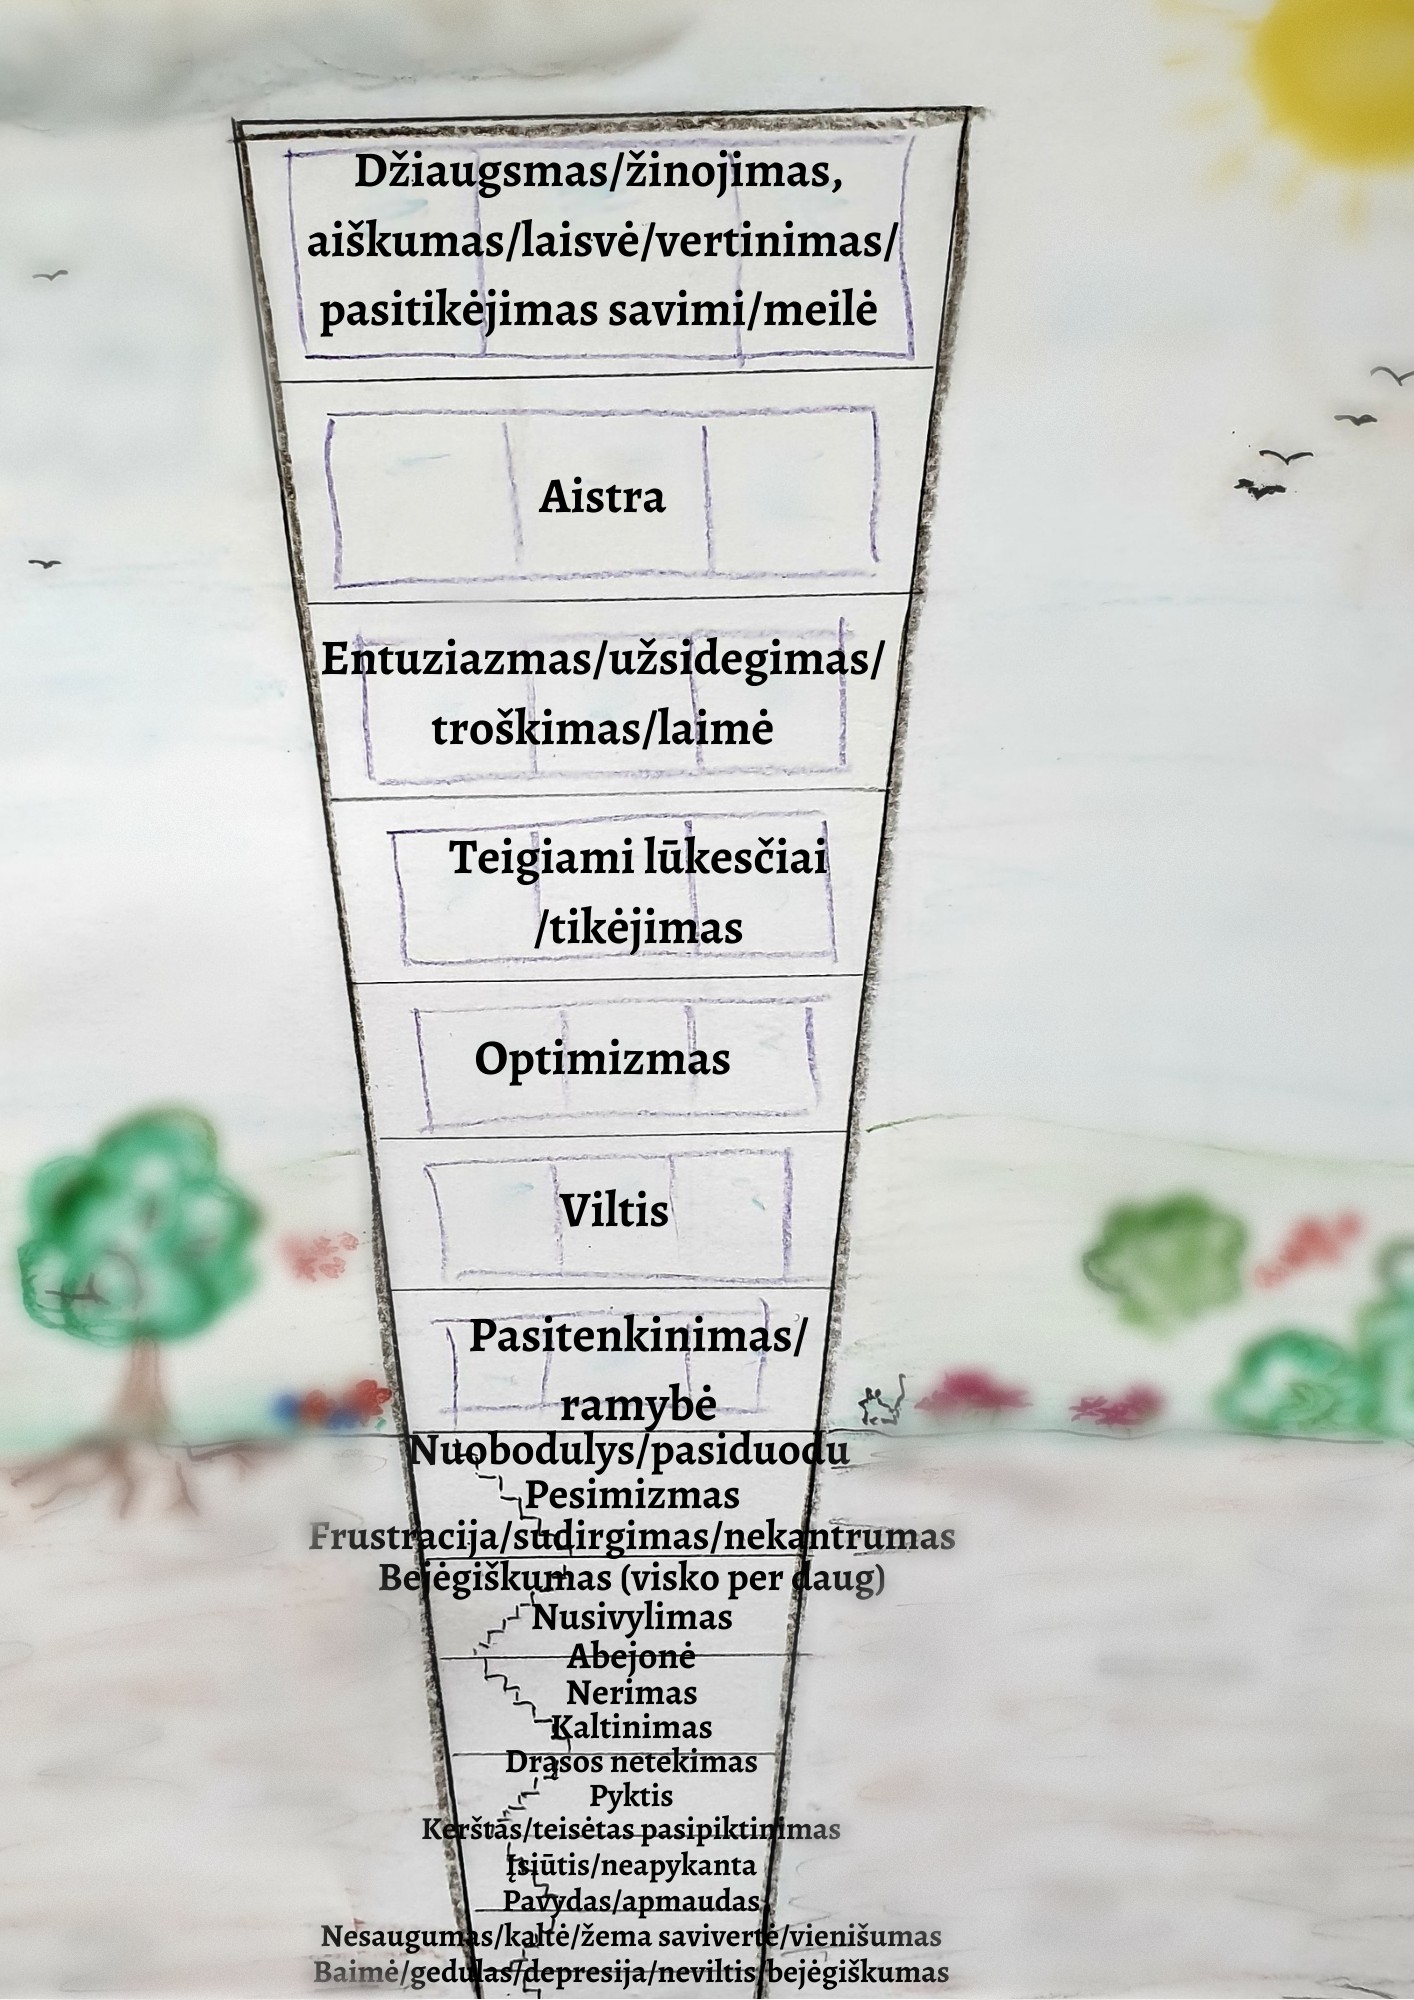 Džiaugsmas/žinojimas,
aiškumas/laisvė/vertinimas/
pasitikėjimas savimi/meilė
Aistra
Entuziazmas/užsidegimas/
troškimas/laimė
Teigiami lūkesčiai
/tikėjimas
Optimizmas
Viltis
Pasitenkinimas/
ramybė
Nuobodulys/pasiduodu
Pesimizmas
Frustracija/sudirgimas/nekantrumas
Bejėgiškumas (visko per daug)
Nusivylimas
Abejonė
Nerimas
Kaltinimas
Drąsos netekimas
Pyktis
Kerštas/teisėtas pasipiktinimas
Įsiūtis/neapykanta
Pavydas/apmaudas
Nesaugumas/kaltė/žema savivertė/vienišumas
Baimė/gedulas/depresija/neviltis/bejėgiškumas